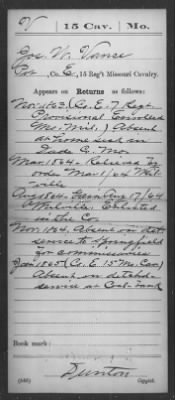 V | 15 Cav. | Mo.
Jos. W. Vance
Pvt., Co. E, 15 Reg't Missouri Cavalry.
Appears on Returns as follows:
Nov. 1863, (Co. E. 7 Regt.
Provisional Enrolled
Mo. Mil.) Absent
at home sick in
Dade Co. Mo.
Mar. 1864. Relieved by
order Mar. 1/64 Mel-
ville
Aug 1864. Gain Aug 17/64
Melville. Enlisted
in the Co.
Nov. 1864, Absent on det.
service to Springfield
for commissaries
Jan 1865 (Co. E. 15 Mo. Cav)
Absent on detchd.
service at
Book mark:
(546) Dunton
Copyist.